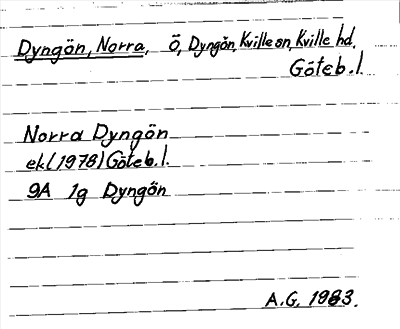 Dyngön, Norra, Ö, Dyngön, Kville sn, Kville hd,
Göteb. l.
Norra Dyngön
ek (1978) Göteb. l.
9A 1g Dyngön
A.G. 1983.